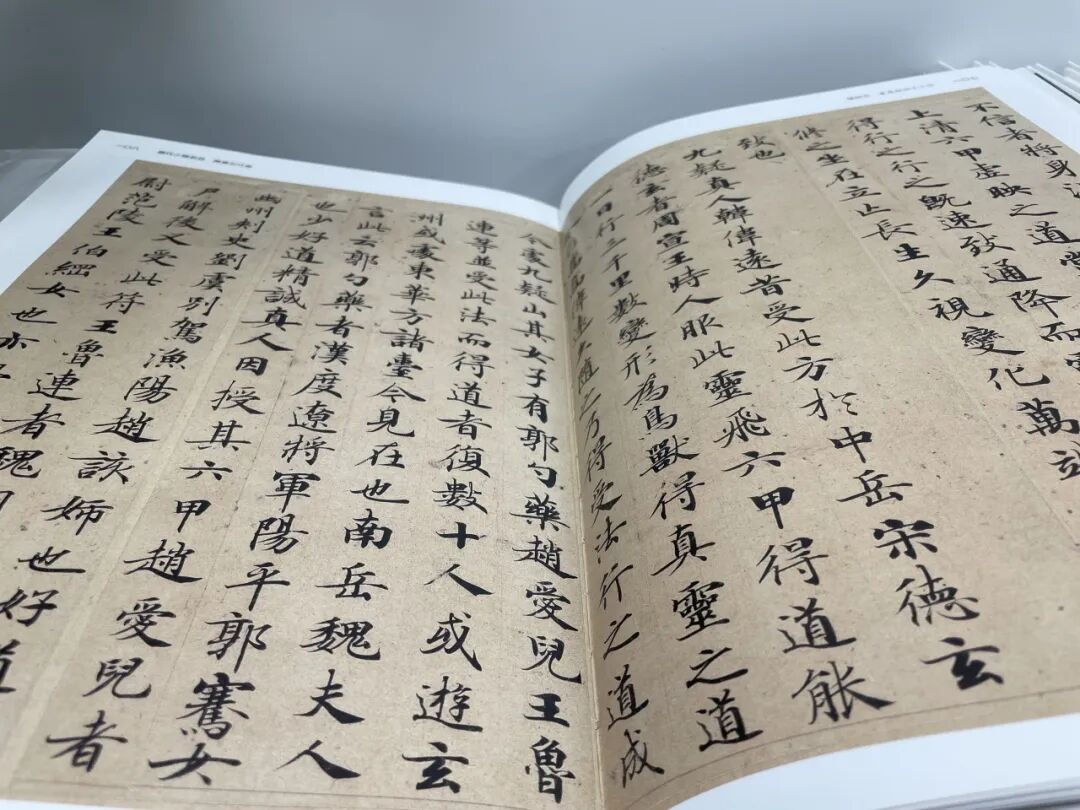 一〇七
不信者將身
上清六甲虛映之道當
得行之行之既速致通降而靈
修之坐在立亡長生久視變化萬端
致也
九疑真人韓偉遠昔受此方於中岳宋德玄
德玄者周宣王時人服此靈飛六甲得道能
一日行三千里數變形為鳥獸得真靈之道
嵩高偉遠久隨之乃得受法行之道成
一〇八
今處九疑山其女子有郭勺藥趙愛兒王魯
連等並受此法而得道者復數十人或遊玄
州或處東華方諸臺今見在也南岳魏夫人
言此云郭勺藥者漢度遼將軍陽平郭騫女
也少好道精誠真人因授其六甲趙愛兒者
幽州刺史劉虞別駕漁陽趙該姊也好道
尸解後又受此符王魯連者魏明
尉范陵王伯綱女也亦